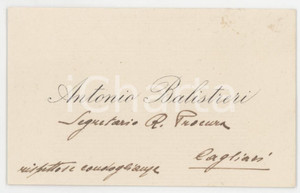 Antonio Balistreri
Segretario R. Procura
Cagliari
rispettose condoglianze